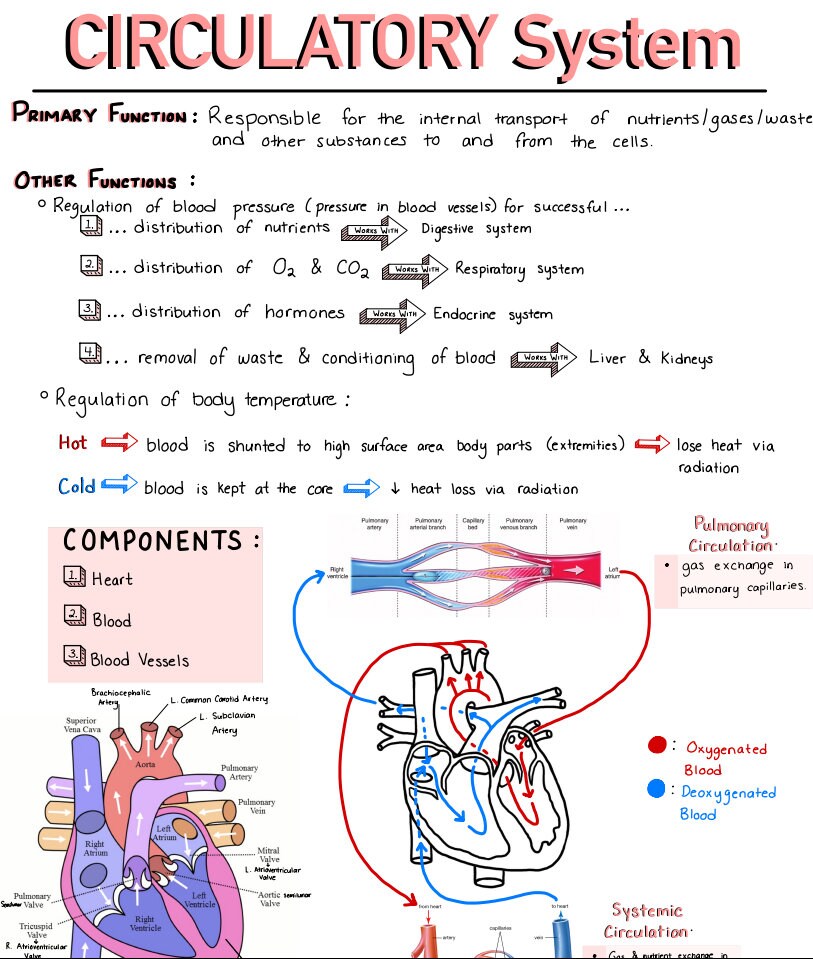 CIRCULATORY System
PRIMARY FUNCTION : Responsible for the internal transport of nutrients/gases/waste
and other substances to and from the cells.
OTHER FUNCTIONS :
° Regulation of blood pressure (pressure in blood vessels) for successful ...
1. ... distribution of nutrients WORKS WITH Digestive system
2. ... distribution of O₂ & CO₂ WORKS WITH Respiratory system
3. ... distribution of hormones WORKS WITH Endocrine system
4. ... removal of waste & conditioning of blood WORKS WITH Liver & Kidneys
° Regulation of body temperature :
Hot ⇒ blood is shunted to high surface area body parts (extremities) ⇒ lose heat via
radiation
Cold ⇒ blood is kept at the core ⇒ ↓ heat loss via radiation
COMPONENTS :
1. Heart
2. Blood
3. Blood Vessels
Pulmonary
artery
Pulmonary
arterial branch
Capillary
bed
Pulmonary
venous branch
Pulmonary
vein
Right
ventricle
Left
atrium
Pulmonary
Circulation·
• gas exchange in
pulmonary capillaries.
Brachiocephalic
Artery
L. Common Carotid Artery
L. Subclavian
Artery
Superior
Vena Cava
Aorta
Pulmonary
Artery
Pulmonary
Vein
Left
Atrium
Right
Atrium
Mitral
Valve
L. Atrioventricular
Valve
Aortic semilunar
Valve
Left
Ventricle
Right
Ventricle
Pulmonary
Semilunar Valve
Tricuspid
Valve
R. Atrioventricular
Valve
: Oxygenated
Blood
: Deoxygenated
Blood
from heart
to heart
artery
capillaries
vein
Systemic
Circulation·
• Gas & nutrient exchange in